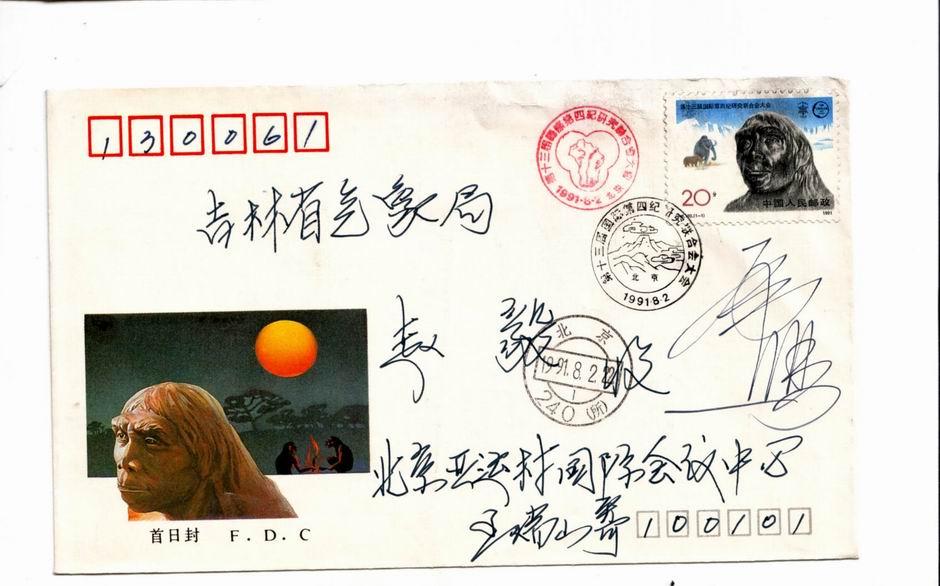 130061
第十三届国际第四纪研究联合会大会
1991·8·2 北京
第十三届国际第四纪研究联合会大会
20分
中国人民邮政
1991
吉林省气象局
第十三届国际第四纪研究联合会大会
北京
1991·8·2
北京
1991.8.2.
1
240(所)
收
北京亚运村国际会议中心
首日封 F.D.C
寄 100101